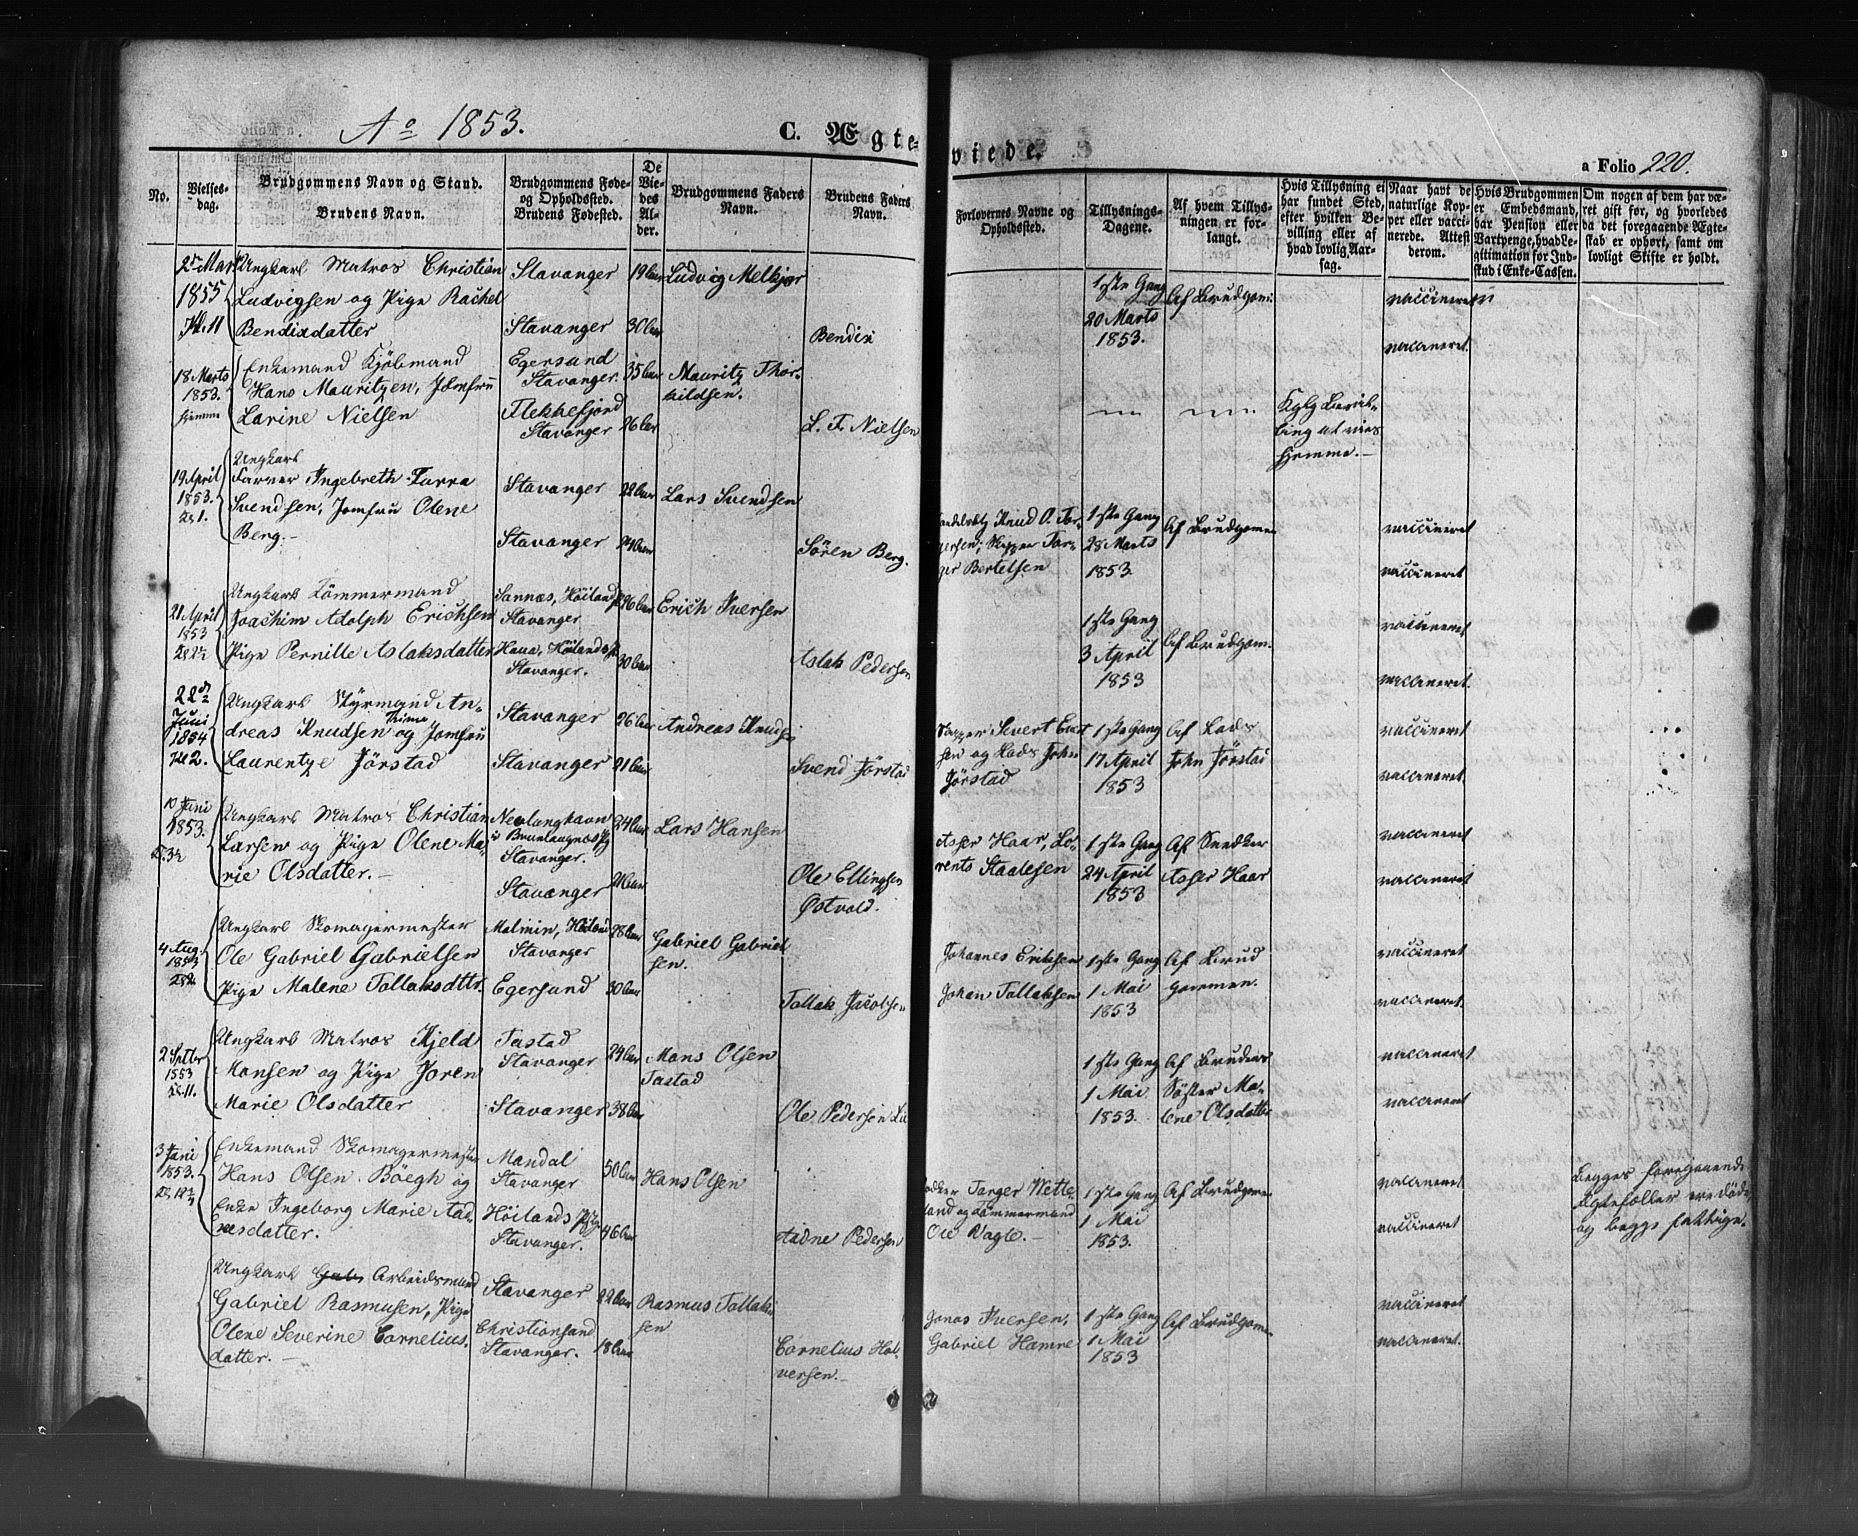 Ao 1853.
C. Ægte-
viede.
a Folio 220.
No.
Vielses-
dag.
Brudgommens Navn og Stand.
Brudens Navn.
Brudgommens Føde-
og Opholdssted.
Brudens Fødested.
De
Vie-
des
Al-
der.
Brudgommens Faders
Navn.
Brudens Faders
Navn.
Forlovernes Navne og
Opholdssted.
Tillysnings-
Dagene.
Af hvem Tillys-
ningen er for-
langt.
Hvis Tillysning ei
har fundet Sted,
efter hvilken Be-
villing eller af
hvad lovlig Aar-
sag.
Naar havt de
naturlige Kop-
per eller vacci-
nerede. Attest
derom.
Hvis Brudgommen
er Embedsmand,
har Pension eller
Vartpenge, hvad Le-
gitimation for Ind-
skud i Enke-Cassen.
Om nogen af dem har væ-
ret gift før, og hvorledes
da det foregaaende Ægte-
skab er ophørt, samt om
lovligt Skifte er holdt.
1855
Kl. 11
Ungkarl Matros Christian
Ludvigsen og Pige Rachel
Bendixdatter
Stavanger
Stavanger
19 Aar
30 Aar
Ludvig Melkjær
1ste Gang
20 Marts
1853.
Af Brudgom:
vaccineret
vaccineret.
18 Marts
1853.
hjemme
Enkemand Kjøbmand
Hans Mauritzen, Jomfru
Larine Nielsen
Egersund
Stavanger.
Flekkefjord
Stavanger
35 Aar
26 Aar
Mauritz Thor-
kildsen.
L. F. Nielsen
Kglg Bevil-
ling at vies
hjemme.-
19 April
1853.
Kl 1.
Ungkarl
Farver Ingebreth Furra
Svendsen, Jomfru Olene
Berg.-
Stavanger
Stavanger
22 Aar
24 Aar
Lars Svendsen
Sören Berg.
Knud O. Tor-
gersen, Skipper Tor-
ger Bertelsen
1ste Gang
28 Marts
1853.
Af Brudgommen
vaccineret
vaccineret
21 April
1853
Ungkarl Tømmermand
Joachim Adolph Erichsen
Pige Pernille Aslaksdatter
Sannæs, Höiland
Stavanger
Hana, Höilands
Stavanger.
26 Aar
30 Aar
Erich Iversen
Aslak Pedersen
1ste Gang
3 April
1853
Af Brudgom.
vaccineret
vaccineret.
22de
Juni
1854
Kl 2.
Ungkarl Styrmand An-
dreas Knudsen og Jomfru
Laurentze Jörstad
Stavanger
Stavanger
26 Aar
21 Aar
Andreas Knudsen
Svend Jörstad
Skipper Sivert Evert
sen og Lods John
Jörstad
1ste Gang
17 April
1853
Af Lods
John Jörstad
vaccineret
vaccineret.
10 Juni
1853.
Ungkarl Matros Christian
Larsen og Pige Olene Ma-
rie Olsdatter.-
Nevlunghavn
i Brunlangnæs Pg
Stavanger.
Stavanger
24 Aar
21 Aar
Lars Hansen
Ole Ellingsen
Østvold.
Asser Haar, Lo-
rents Staalesen
1ste Gang
24 April
1853
Af Snedker
Asser Haar
vaccineret
vaccineret
4 Aug.
1853
Ungkarl Skomagermester
Ole Gabriel Gabrielsen
Pige Malene Tollaksdttr.
Malmin, Höiland
Stavanger
Egersund
28 Aar
30 Aar
Gabriel Gabriel
sen.
Tollak Jacobsen
Johannes Eriksen
Johan Tollaksen
1ste Gang
1 Mai
1853
Af Brud
gommen.
vaccineret
vaccineret.
2 Septbr
1853
Kl. 11.
Ungkarl Matros Kjeld
Monsen og Pige Joren
Marie Olsdatter
Tastad
Stavanger
Stavanger
24 Aar
38 Aar
Mons Olsen
Tastad
Ole Pedersen
1ste Gang
1 Mai
1853.
Af Brudens
Søster Ma-
lene Olsdatter
vaccineret
vaccineret
3 Juni
1853.
Enkemand Skomagermester
Hans Olsen Böegh og
Enke Ingeborg Marie Aad-
nesdatter.
Mandal
Stavanger
Höilands Pg
Stavanger.
50 Aar
46 Aar
Hans Olsen
Aadne Pedersen
Tanger Wette-
land og Tømmermand
Ole Vagle.-
1ste Gang
1 Mai
1853.
Af Brudgommen
vaccineret
vaccineret
Begges foregaaende
Ægtefæller ere døde
og begge fattige.
Ungkarl Arbeidsmand
Gabriel Rasmusen, Pige
Olene Severine Cornelius-
datter.-
Stavanger
Christiansand
Stavanger.
22 Aar
18 Aar
Rasmus Tollak-
sen
Cornelius Hal-
versen.-
Jonas Iversen,
Gabriel Hamre
1ste Gang
1 Mai
1853
Af Brudgommen
vaccineret
vaccineret.